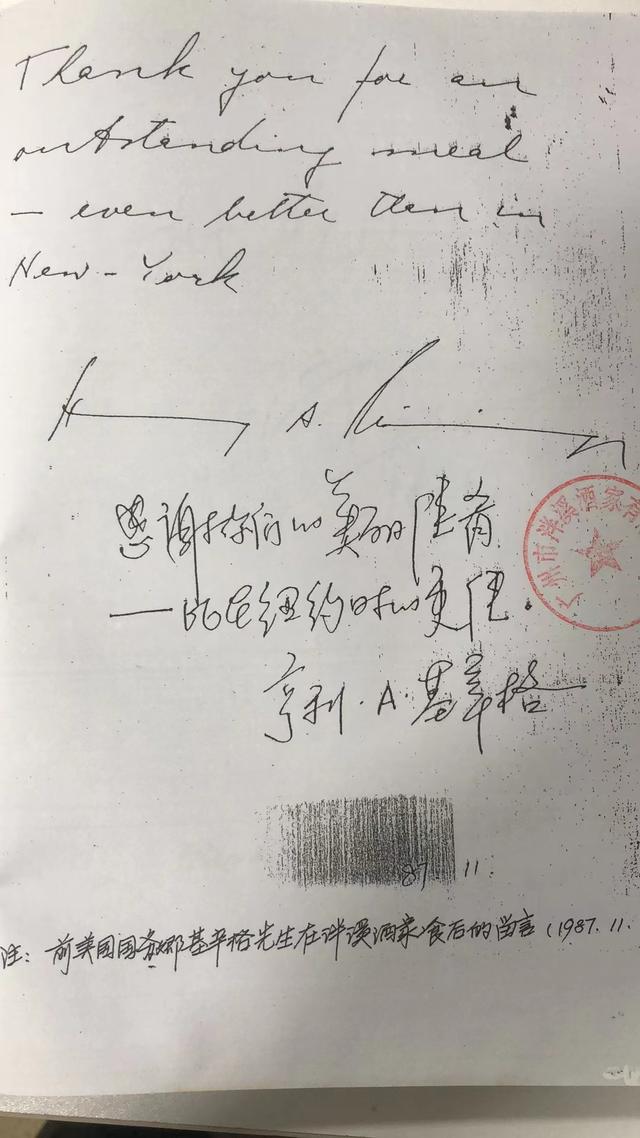 Thank you for an
outstanding meal
— even better then in
New-York
Henry A. Kissinger
感谢你们的美丽佳肴
—比在纽约时的更佳.
亨利.A.基辛格
广州市泮溪酒家有
87. 11
注: 前美国国务卿基辛格先生在泮溪酒家食后的留言 (1987.11.